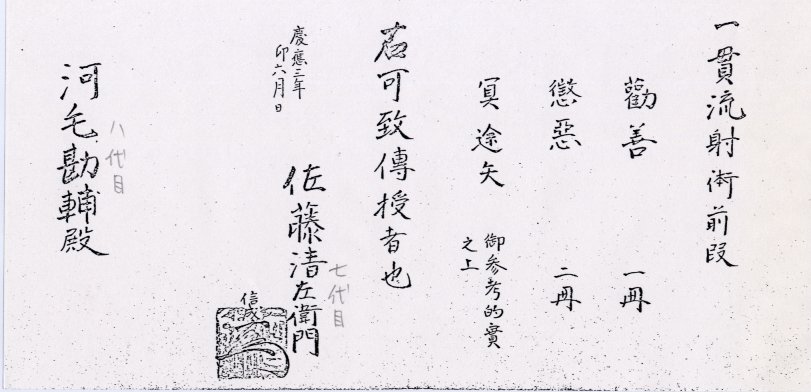 一貫流射術前段
勸善 一冊
懲惡 二冊
冥途矢 御参考的實
之上
右可致傳授者也
慶應三年
卯六月日
佐藤清左衛門
七代目
信成
河毛勘輔殿
八代目